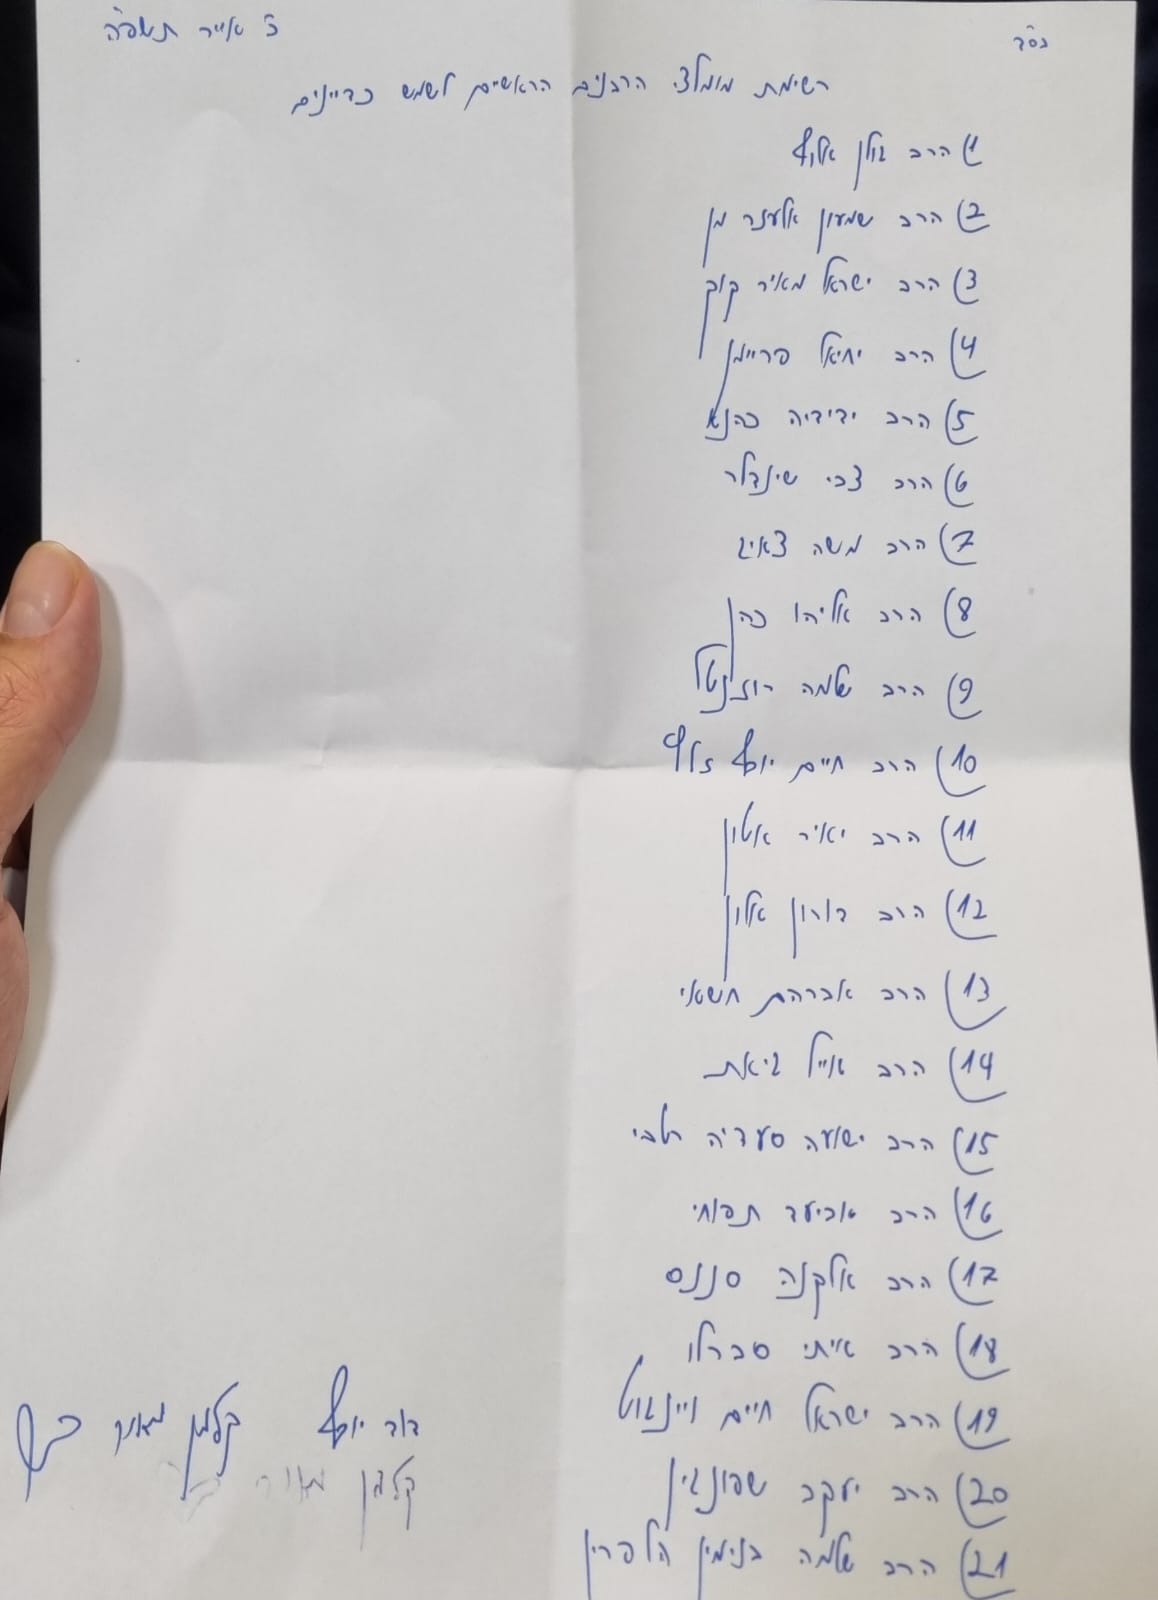 בס"ד
ג' אייר תשפ"ה
רשימת מומלצי הרבנים הראשיים לשמש כדיינים
1) הרב גולן אלוף
2) הרב שמעון אלעזר מן
3) הרב ישראל מאיר קוק
4) הרב יחיאל פריימן
5) הרב ידידיה כהנא
6) הרב צבי שינדלר
7) הרב משה צאיג
8) הרב אליהו כהן
9) הרב שלמה רוזנטל
10) הרב חיים יוסף זלץ
11) הרב יאיר אטון
12) הרב דורון אלון
13) הרב אברהם חשאי
14) הרב אייל גיאת
15) הרב ישועה סעדיה רטבי
16) הרב אביעד תפוחי
17) הרב אלקנה סננס
18) הרב איתי סברלו
19) הרב ישראל חיים ויינגוט
20) הרב יעקב שפונגין
21) הרב שלמה בנימין הלפרין
דוד יוסף קלמן מאיר בר
קלמן מאיר בר